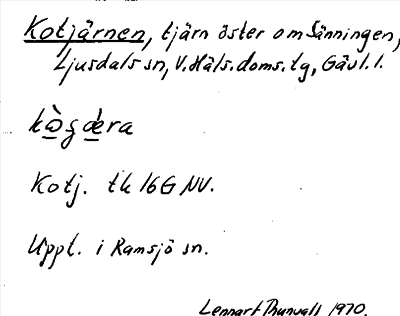 Kotjärnen, tjärn öster om Sänningen,
Ljusdals sn, V. Häls. doms. tg, Gävl. l.
kò̱ʒæ̱ra
Kotj. tk 16G NV.
Uppt. i Ramsjö sn.
Lennart Thunvall 1970.